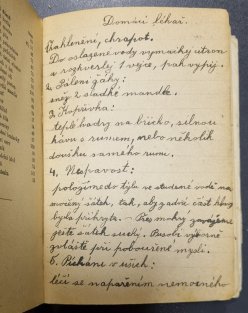 Domácí lékař.
1. Zahlenění, chrapot.
Do oslazené vody vymačkej citron
a rozkverlej 1 vejce, pak vypij.
2. Pálení žáhy:
sněz 2 sladké mandle.
3. Kopřivka:
teplé hadry na břicho, silnou
kávu s rumem, nebo několik
doušků samého rumu.
4. Nespavost:
polož na do týlu ve studené vodě na-
močený šátek, tak, aby zadní část hlavy
byla přikryta. - Přes mokrý zavážeme
ještě šátek suchý. Působí výborně
zvláště při pobouřené mysli.
5. Píchání v uších:
léčí se napařením nemocného